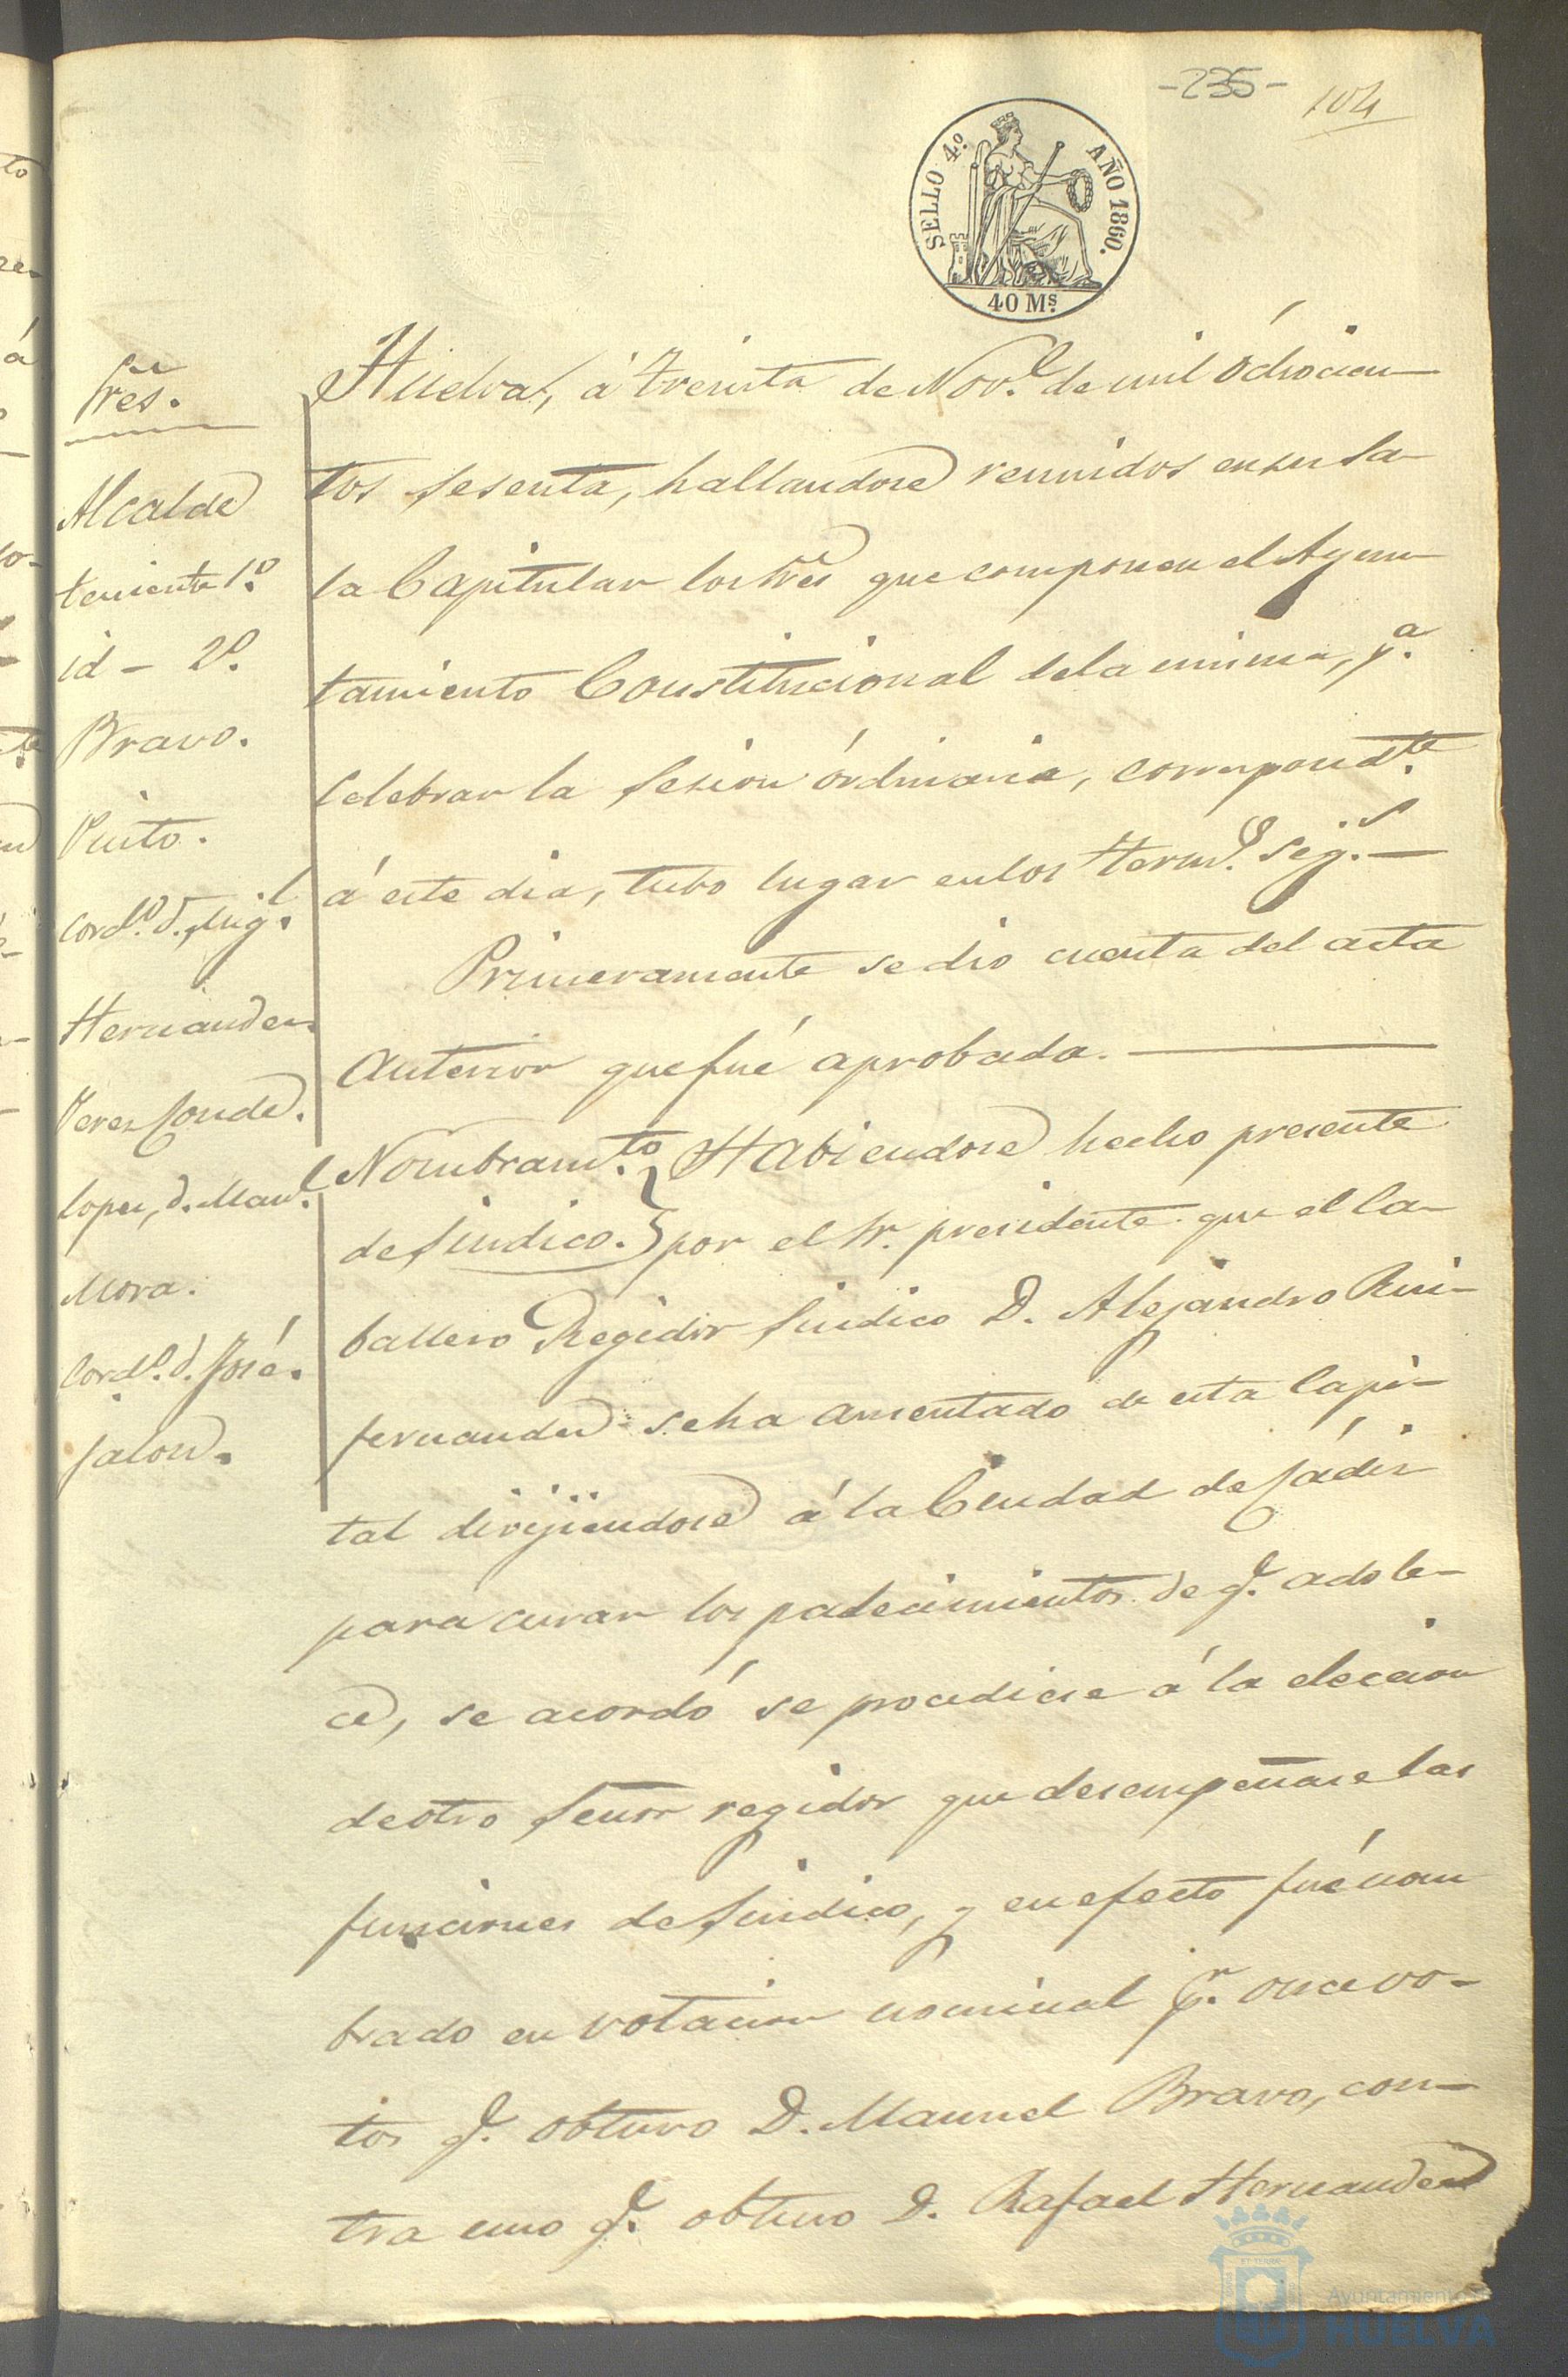 -235-
104
SELLO 4º.
AÑO 1860.
40 Ms.
Sres.
Alcalde
teniente 1º.
id - 2º.
Bravo.
Pinto.
Cordº. d. Migl.
Hernandez.
Perez Conde.
Lopez, d. Manl.
Mora.
Cordº. d. José.
Jalon.
Huelva, á treinta de Nove. de mil óchocien-
tos sesenta, hallandose reunidos en su Sa-
la Capitular los Sres que componen el Ayun-
tamiento Constitucional de la misma, pª.
Celebrar la Sesion órdinaria, correspondte.
á este dia, tubo lugar en los termos. sigs. —
Primeramente se dio cuenta del acta
Anterior que fué aprobada. —
Nombramto. de Sindico. } Habiendose hecho presente
por el Sr. presidente que el Ca-
ballero Regidor Sindico D. Alejandro Rui-
fernandez se ha ausentado de esta Capi-
tal dirijiendose á la Ciudad de Cádiz
para curar los padecimientos de qe. adole-
ce, se acordó se procediese á la eleccion
de otro Señor regidor que desempeñase las
funciones de Sindico, y en efecto fué nom
brado en votacion nominal pr. once vo-
tos qe. obtuvo D. Manuel Bravo, con-
tra uno qe. obtuvo D. Rafael Hernandez
Ayuntamiento de
HUELVA